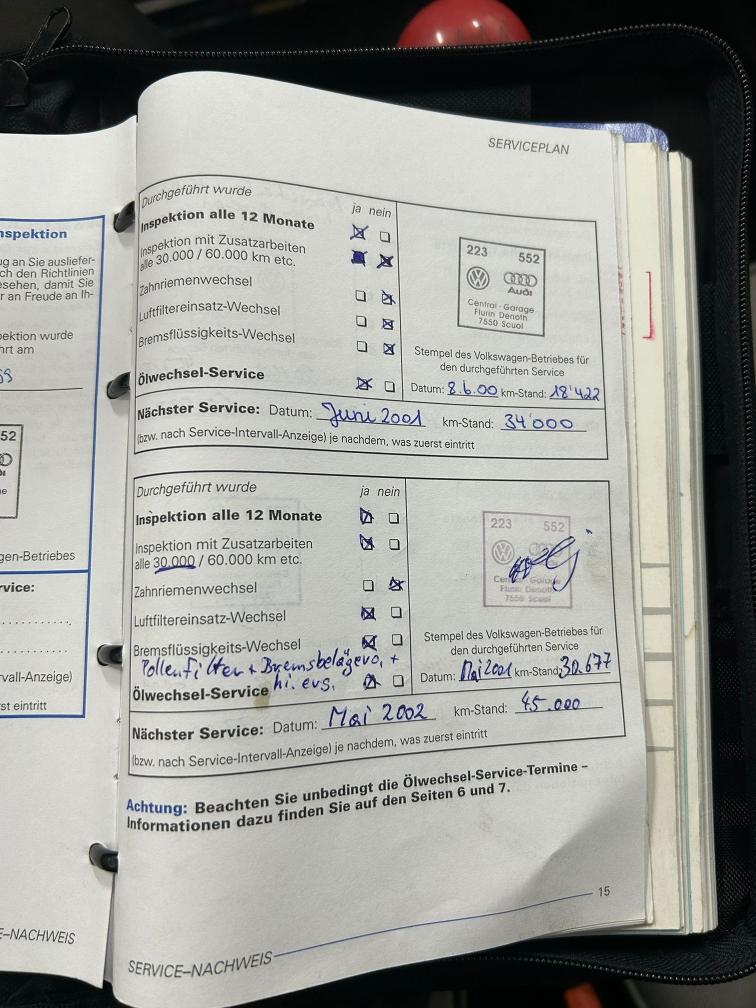 SERVICEPLAN
Durchgeführt wurde
ja nein
Inspektion alle 12 Monate
Inspektion mit Zusatzarbeiten
alle 30.000 / 60.000 km etc.
Zahnriemenwechsel
Luftfiltereinsatz-Wechsel
Bremsflüssigkeits-Wechsel
Ölwechsel-Service
223 552
Audi
Central-Garage
Flurin Denoth
7550 Scuol
Stempel des Volkswagen-Betriebes für
den durchgeführten Service
Datum: 8.6.00 km-Stand: 18'422
Nächster Service: Datum: Juni 2001 km-Stand: 34'000
(bzw. nach Service-Intervall-Anzeige) je nachdem, was zuerst eintritt
Durchgeführt wurde
ja nein
Inspektion alle 12 Monate
Inspektion mit Zusatzarbeiten
alle 30.000 / 60.000 km etc.
Zahnriemenwechsel
Luftfiltereinsatz-Wechsel
Bremsflüssigkeits-Wechsel
Pollenfilter + Bremsbeläge vo. +
hi. ers.
Ölwechsel-Service
223 552
Central-Garage
Flurin Denoth
7550 Scuol
Stempel des Volkswagen-Betriebes für
den durchgeführten Service
Datum: Mai 2001 km-Stand: 30.677
Nächster Service: Datum: Mai 2002 km-Stand: 45.000
(bzw. nach Service-Intervall-Anzeige) je nachdem, was zuerst eintritt
Achtung: Beachten Sie unbedingt die Ölwechsel-Service-Termine –
Informationen dazu finden Sie auf den Seiten 6 und 7.
15
SERVICE–NACHWEIS
nspektion
ug an Sie ausliefer-
ch den Richtlinien
esehen, damit Sie
r an Freude an Ih-
pektion wurde
hrt am
52
gen-Betriebes
rvice:
vall-Anzeige)
st eintritt
E–NACHWEIS